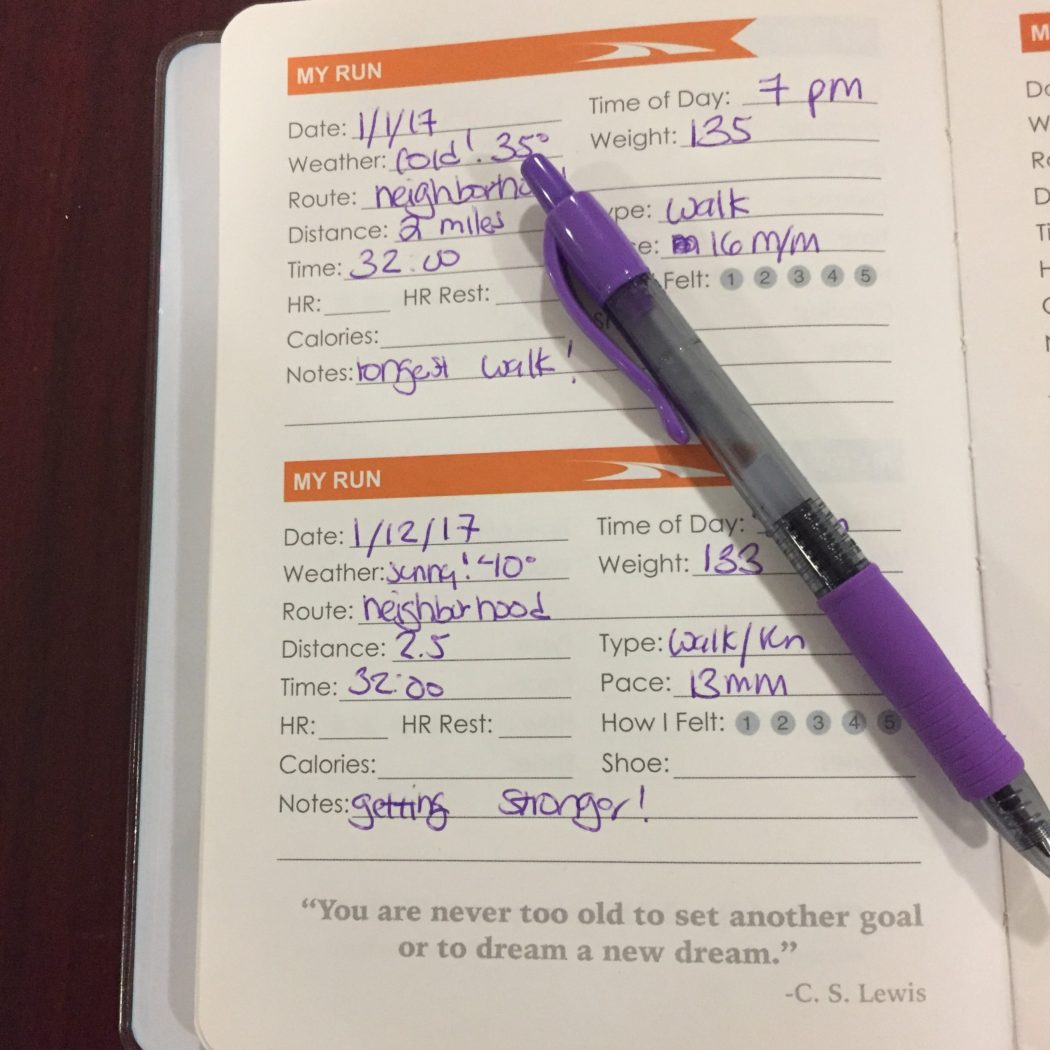 MY RUN
Date: 1/1/17 Time of Day: 7 pm
Weather: cold! 35° Weight: 135
Route:
Distance: 2 miles Type: walk
Time: 32:00 16 m/m
HR: HR Rest: Felt: 1 2 3 4 5
Calories:
Notes: longest walk!
MY RUN
Date: 1/12/17 Time of Day:
Weather: sunny! 40° Weight: 133
Route: neighborhood
Distance: 2.5 Type: walk/
Time: 32:00 Pace: 13 mm
HR: HR Rest: How I Felt: 1 2 3 4 5
Calories: Shoe:
Notes: getting stronger!
“You are never too old to set another goal
or to dream a new dream.”
-C. S. Lewis